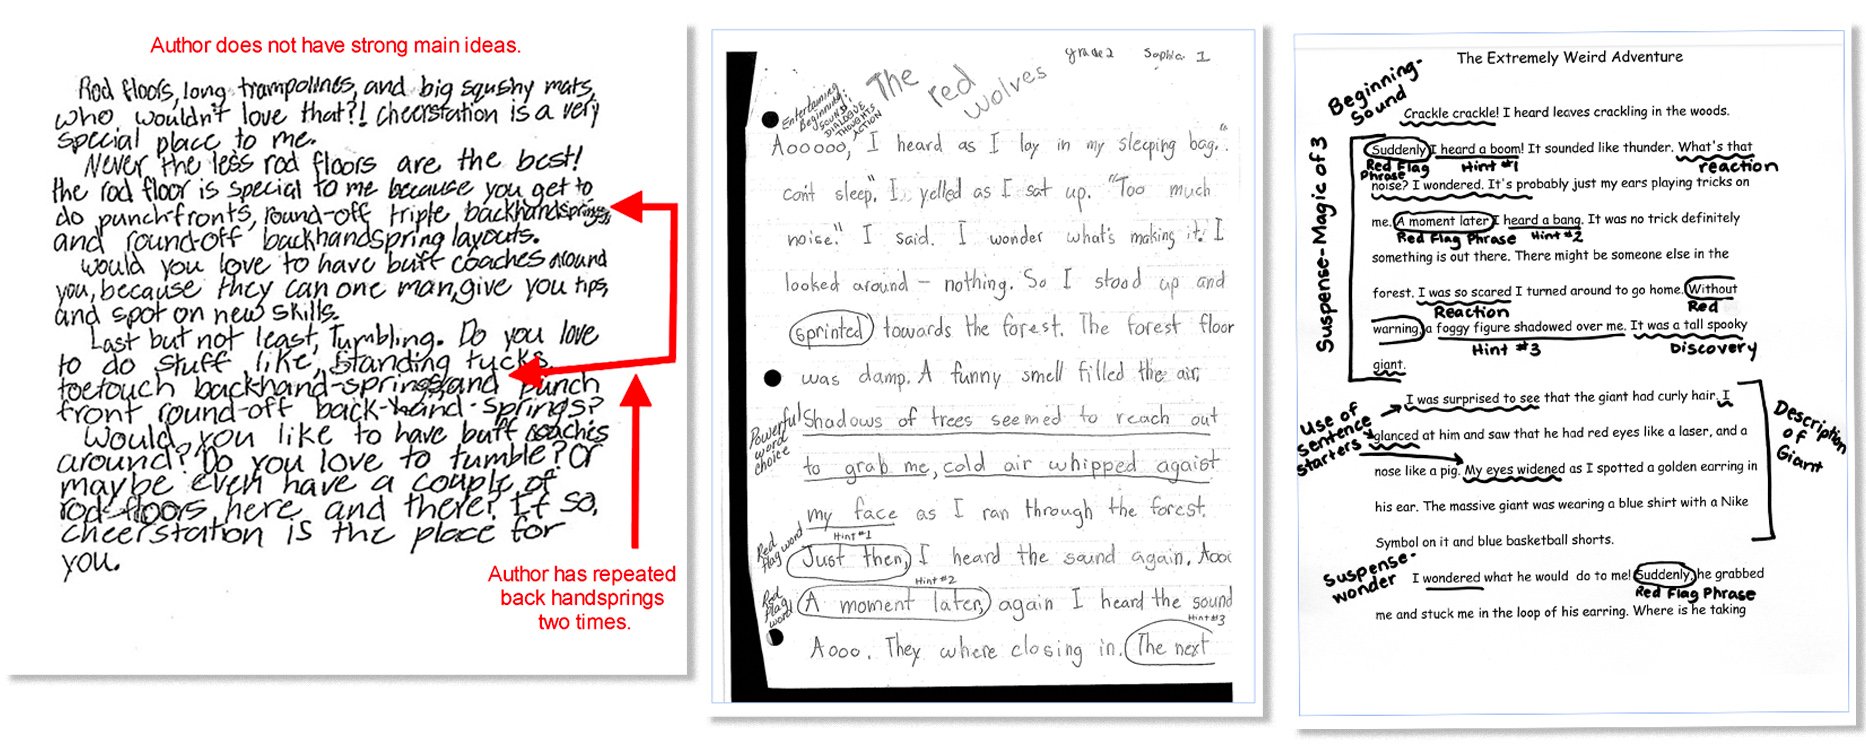 Author does not have strong main ideas.
Rod floors, long trampolines, and big squshy mats,
who wouldn't love that?! Cheerstation is a very
special place to me.
Never the less rod floors are the best!
the rod floor is special to me because you get to
do punch-fronts, round-off triple backhandsprings,
and round-off backhandspring layouts.
Would you love to have buff coaches around
you, because they can one man, give you tips,
and spot on new skills.
Last but not least, Tumbling. Do you love
to do stuff like, Standing tucks,
toetouch backhand-springs, and punch
front round-off back-hand-springs?
Would you like to have buff coaches
around? Do you love to tumble? Or
maybe even have a couple of
rod-floors here and there? If so,
cheerstation is the place for
you.
Author has repeated
back handsprings
two times.
grade 2 Sophia 1
The red wolves
Entertaining
Beginning:
SOUND
DIALOGUE
THOUGHTS
ACTION
Aooooo, I heard as I lay in my sleeping bag. "
can't sleep." I yelled as I sat up. "Too much
noise." I said. I wonder what's making it. I
looked around - nothing. So I stood up and
sprinted towards the forest. The forest floor
was damp. A funny smell filled the air,
Powerful
word
choice
Shadows of trees seemed to reach out
to grab me, cold air whipped agaist
my face as I ran through the forest.
Red
flag word
Hint #1
Just then, I heard the sound again, Aooo
Hint #2
Red
flag
word
A moment later, again I heard the sound
Hint #3
Aooo. They where closing in. The next
The Extremely Weird Adventure
Beginning-
Sound
Crackle crackle! I heard leaves crackling in the woods.
Suspense-Magic of 3
Suddenly I heard a boom! It sounded like thunder. What's that
Red Flag Phrase Hint #1 reaction
noise? I wondered. It's probably just my ears playing tricks on
me. A moment later I heard a bang. It was no trick definitely
Red Flag Phrase Hint #2
something is out there. There might be someone else in the
forest. I was so scared I turned around to go home. Without
Reaction Red
warning, a foggy figure shadowed over me. It was a tall spooky
Hint #3 Discovery
giant.
Use of
sentence
starters
I was surprised to see that the giant had curly hair. I
glanced at him and saw that he had red eyes like a laser, and a
nose like a pig. My eyes widened as I spotted a golden earring in
his ear. The massive giant was wearing a blue shirt with a Nike
Symbol on it and blue basketball shorts.
Description
of
Giant
Suspense-
wonder
I wondered what he would do to me! Suddenly, he grabbed
Red Flag Phrase
me and stuck me in the loop of his earring. Where is he taking